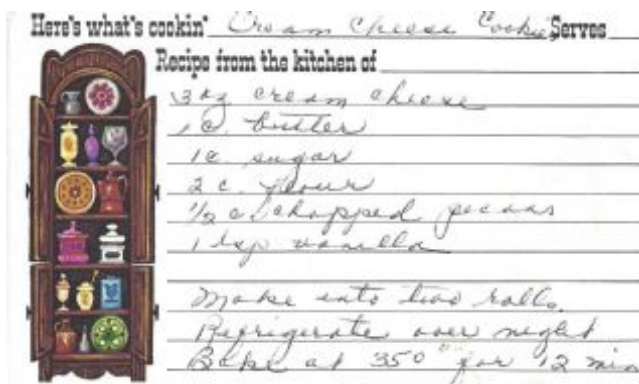 Here's what's cookin' Cream Cheese Cookies Serves
Recipe from the kitchen of
3 oz cream cheese
1 c. butter
1 c. sugar
2 c. flour
1/2 c chopped pecans
1 tsp vanilla
Make into two rolls.
Refrigerate over night
Bake at 350° for 12 min